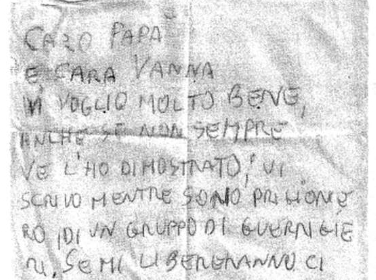 CARO PAPA'
E CARA VANNA
VI VOGLIO MOLTO BENE,
ANCHE SE NON SEMPRE
VE L'HO DIMOSTRATO, VI
SCRIVO MENTRE SONO PRIGIONE
RO DI UN GRUPPO DI GUERRIGLIE
RI, SE MI LIBERERANNO CI